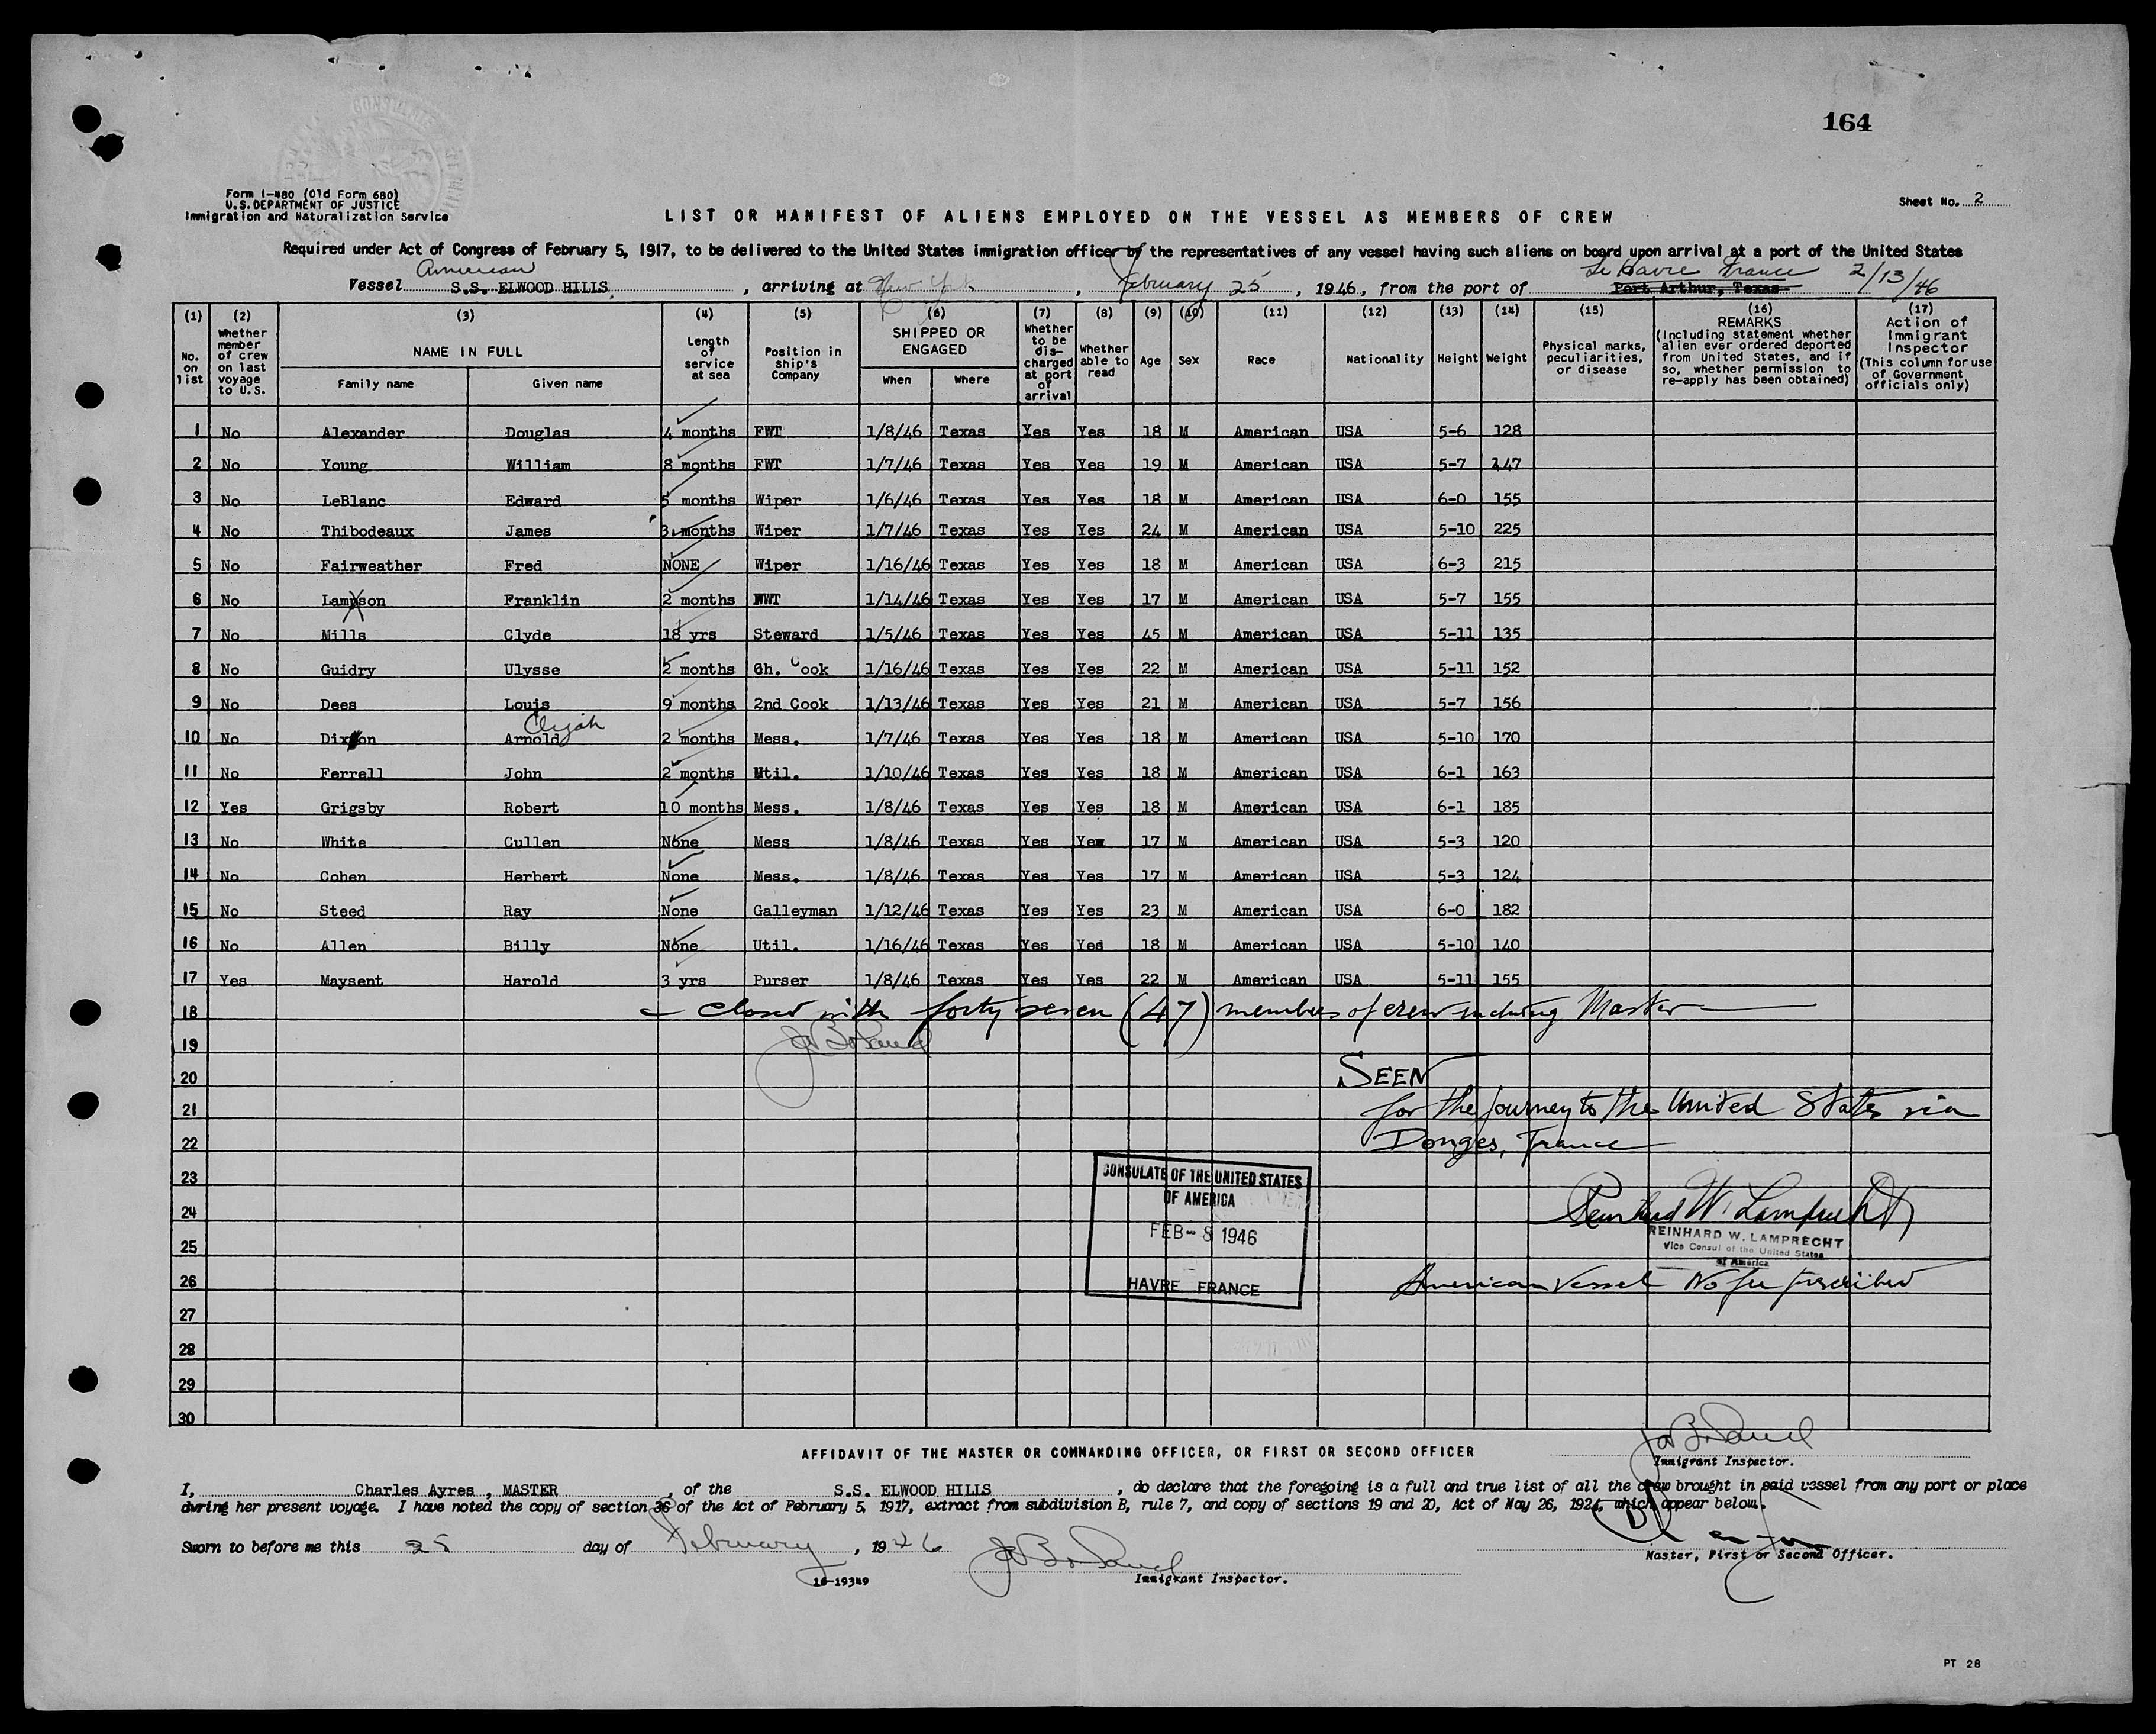 164
Form I-480 (Old Form 680)
U.S. DEPARTMENT OF JUSTICE
Immigration and Naturalization Service
Sheet No. 2
LIST OR MANIFEST OF ALIENS EMPLOYED ON THE VESSEL AS MEMBERS OF CREW
Required under Act of Congress of February 5, 1917, to be delivered to the United States immigration officer by the representatives of any vessel having such aliens on board upon arrival at a port of the United States
American Le Havre France 2/13/46
Vessel S.S. ELWOOD HILLS, arriving at New York, February 25, 1946, from the port of Port Arthur, Texas
(1) (2) (3) (4) (5) (6) (7) (8) (9) (10) (11) (12) (13) (14) (15) (16) (17)
No. on list
Whether member of crew on last voyage to U.S.
NAME IN FULL
Family name Given name
Length of service at sea
Position in ship's Company
SHIPPED OR ENGAGED
When Where
Whether to be discharged at port of arrival
Whether able to read
Age
Sex
Race
Nationality
Height
Weight
Physical marks, peculiarities, or disease
REMARKS (Including statement whether alien ever ordered deported from United States, and if so, whether permission to re-apply has been obtained)
Action of Immigrant Inspector (This column for use of Government officials only)
1 No Alexander Douglas 4 months FWT 1/8/46 Texas Yes Yes 18 M American USA 5-6 128
2 No Young William 8 months FWT 1/7/46 Texas Yes Yes 19 M American USA 5-7 147
3 No LeBlanc Edward 5 months Wiper 1/6/46 Texas Yes Yes 18 M American USA 6-0 155
4 No Thibodeaux James 3 months Wiper 1/7/46 Texas Yes Yes 24 M American USA 5-10 225
5 No Fairweather Fred NONE Wiper 1/16/46 Texas Yes Yes 18 M American USA 6-3 215
6 No Lampson Franklin 2 months FWT 1/14/46 Texas Yes Yes 17 M American USA 5-7 155
7 No Mills Clyde 18 yrs Steward 1/5/46 Texas Yes Yes 45 M American USA 5-11 135
8 No Guidry Ulysse 2 months Ch. Cook 1/16/46 Texas Yes Yes 22 M American USA 5-11 152
9 No Dees Louis 9 months 2nd Cook 1/13/46 Texas Yes Yes 21 M American USA 5-7 156
Elijah
10 No Dixon Arnold 2 months Mess. 1/7/46 Texas Yes Yes 18 M American USA 5-10 170
11 No Ferrell John 2 months Util. 1/10/46 Texas Yes Yes 18 M American USA 6-1 163
12 Yes Grigsby Robert 10 months Mess. 1/8/46 Texas Yes Yes 18 M American USA 6-1 185
13 No White Cullen None Mess 1/8/46 Texas Yes Yes 17 M American USA 5-3 120
14 No Cohen Herbert None Mess. 1/8/46 Texas Yes Yes 17 M American USA 5-3 124
15 No Steed Ray None Galleyman 1/12/46 Texas Yes Yes 23 M American USA 6-0 182
16 No Allen Billy None Util. 1/16/46 Texas Yes Yed 18 M American USA 5-10 140
17 Yes Maysent Harold 3 yrs Purser 1/8/46 Texas Yes Yes 22 M American USA 5-11 155
18 closed with forty seven (47) members of crew including Master
19
20 SEEN
21 for the journey to the United States via
22 Donges, France
23
24
25
26
27
28
29
30
CONSULATE OF THE UNITED STATES
OF AMERICA
FEB - 8 1946
HAVRE FRANCE
Reinhard W. Lamprecht
REINHARD W. LAMPRECHT
Vice Consul of the United States
of America
American Vessel No fee prescribed
AFFIDAVIT OF THE MASTER OR COMMANDING OFFICER, OR FIRST OR SECOND OFFICER
Immigrant Inspector.
I, Charles Ayres, MASTER, of the S.S. ELWOOD HILLS, do declare that the foregoing is a full and true list of all the crew brought in said vessel from any port or place
during her present voyage. I have noted the copy of section 36 of the Act of February 5, 1917, extract from subdivision B, rule 7, and copy of sections 19 and 20, Act of May 26, 1924, which appear below.
Sworn to before me this 25 day of February, 1946
Master, First or Second Officer.
16-19349
Immigrant Inspector.
PT 28